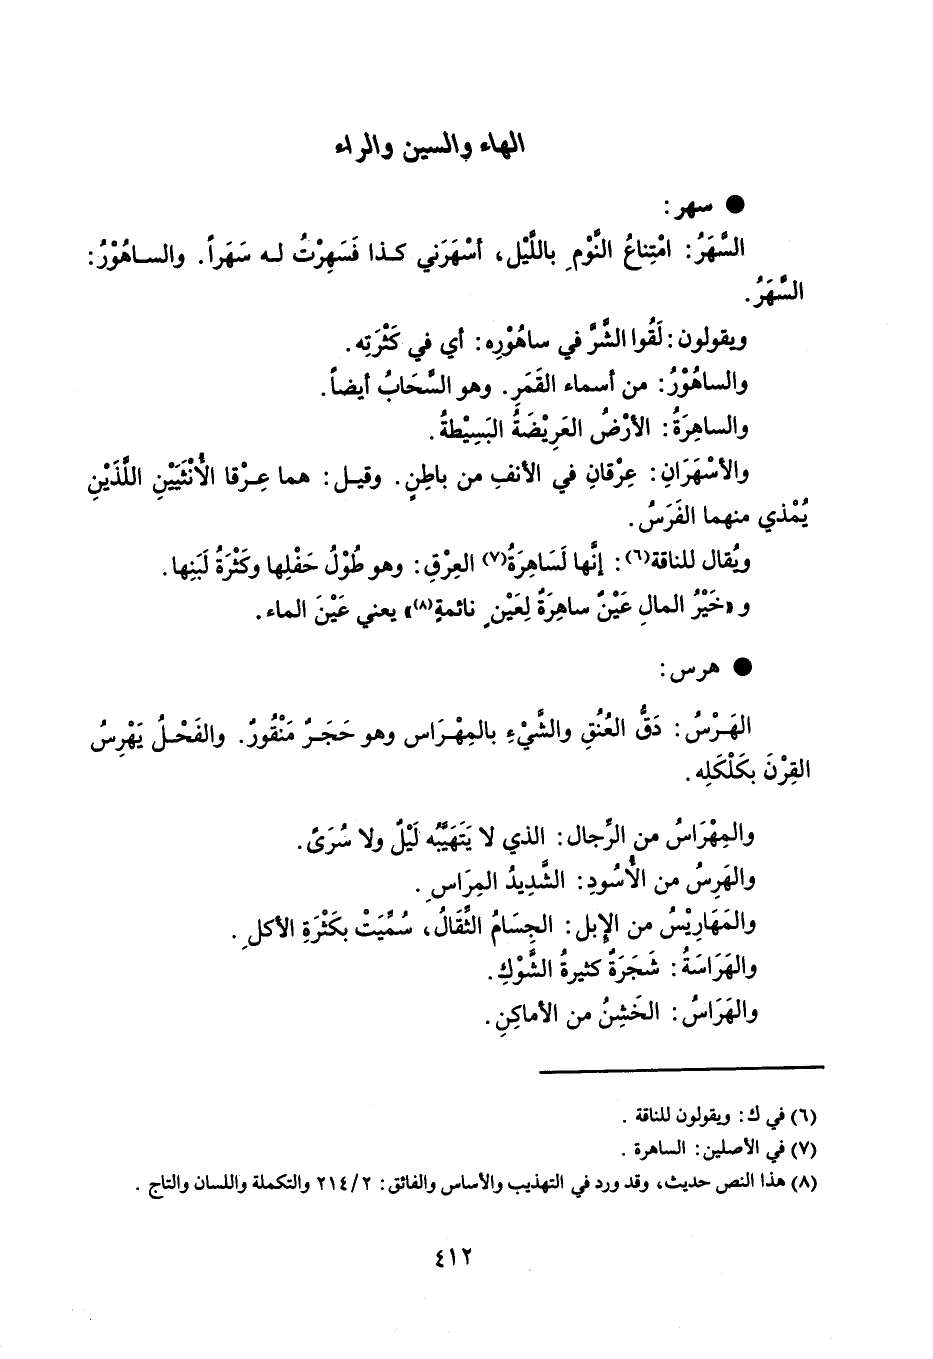 الهاء والسين والراء
● سهر:
السَّهَرُ: امْتِناعُ النَّوْمِ باللَّيْل، أسْهَرَني كـذا فَسَهِرْتُ لـه سَهَراً. والسـاهُوْرُ:
السَّهَرُ.
ويقولون: لَقُوا الشَّرَّ في ساهُوْرِه: أي في كَثْرَتِه.
والساهُوْرُ: من أسماء القَمَرِ. وهو السَّحَابُ أيضاً.
والساهِرَةُ: الأرْضُ العَرِيْضَةُ البَسِيْطةُ.
والأسْهَرَانِ: عِرْقانِ في الأنفِ من باطِنٍ. وقيـل: هما عِـرْقا الأُنْثَيَيْنِ اللَّذَيْنِ
يُمْذي منهما الفَرَسُ.
ويُقال للناقة(٦): إنَّها لَسَاهِرَةُ(٧) العِرْقِ: وهو طُوْلُ حَفْلِها وكَثْرَةُ لَبَنِها.
و «خَيْرُ المالِ عَيْنٌ ساهِرَةٌ لِعَيْنٍ نائمةٍ(٨)» يعني عَيْنَ الماء.
● هرس:
الهَـرْسُ: دَقُّ العُنُقِ والشَّيْءِ بالمِهْـرَاس وهو حَجَـرٌ مَنْقُورٌ. والفَحْـلُ يَهْرِسُ
القِرْنَ بكَلْكَلِه.
والمِهْرَاسُ من الرِّجال: الذي لا يَتَهَيَّبُه لَيْلٌ ولا سُرَىً.
والهَرِسُ من الأُسُودِ: الشَّدِيدُ المِرَاسِ.
والمَهَارِيْسُ من الإِبل: الجِسَامُ الثِّقَالُ، سُمِّيَتْ بكَثْرَةِ الأكلِ.
والهَرَاسَةُ: شَجَرَةٌ كثيرةُ الشَّوْكِ.
والهَرَاسُ: الخَشِنُ من الأماكِنِ.
(٦) في ك: ويقولون للناقة.
(٧) في الأصلين: الساهرة.
(٨) هذا النص حديث، وقد ورد في التهذيب والأساس والفائق: ٢/٢١٤ والتكملة واللسان والتاج.
٤١٢